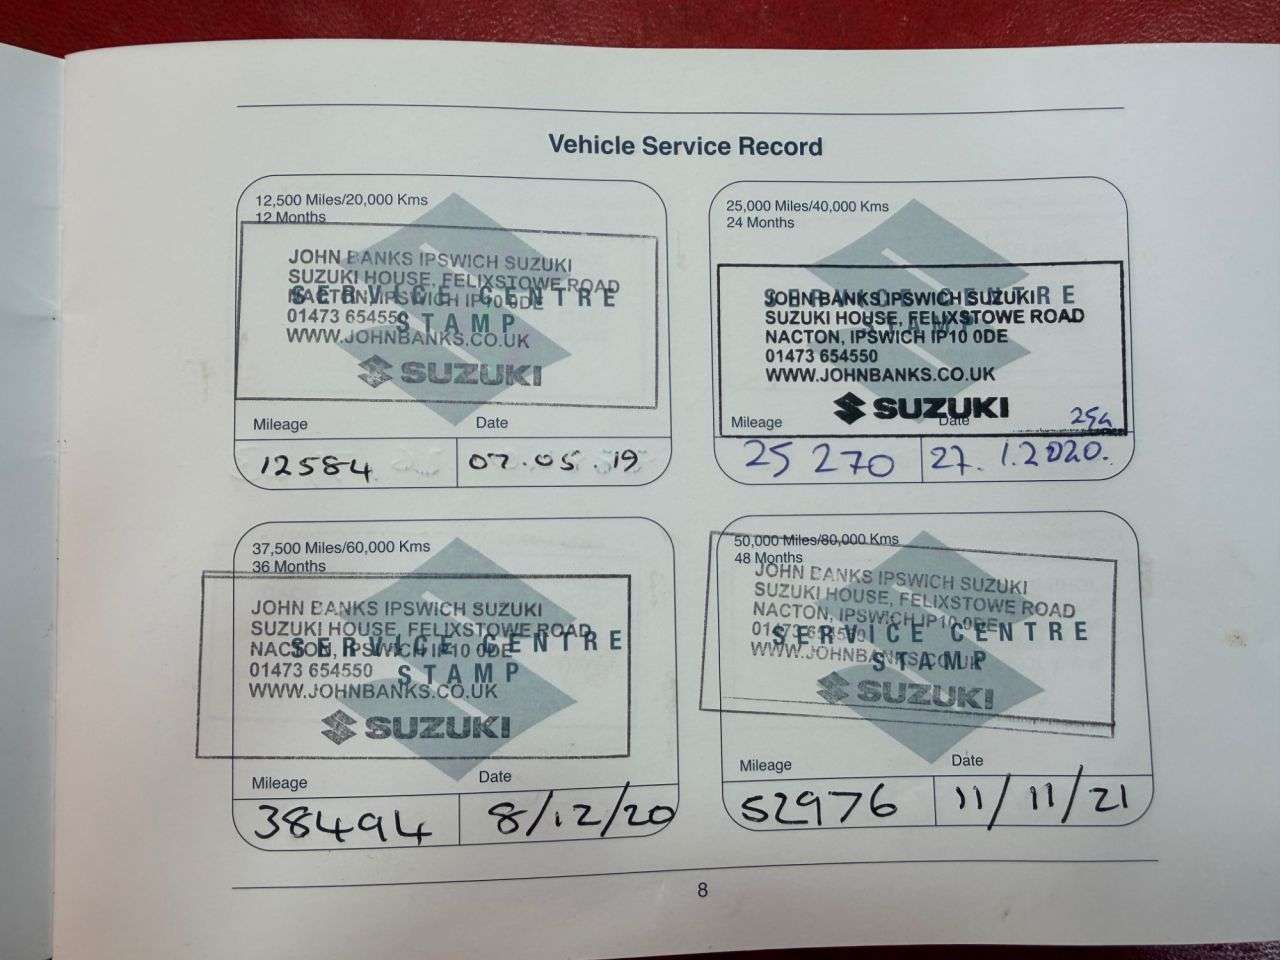 Vehicle Service Record
12,500 Miles/20,000 Kms
12 Months
SERVICE CENTRE
STAMP
JOHN BANKS IPSWICH SUZUKI
SUZUKI HOUSE, FELIXSTOWE ROAD
NACTON, IPSWICH IP10 0DE
01473 654550
WWW.JOHNBANKS.CO.UK
SUZUKI
Mileage Date
12584 07.05.19
25,000 Miles/40,000 Kms
24 Months
SERVICE CENTRE
STAMP
JOHN BANKS IPSWICH SUZUKI
SUZUKI HOUSE, FELIXSTOWE ROAD
NACTON, IPSWICH IP10 0DE
01473 654550
WWW.JOHNBANKS.CO.UK
SUZUKI
Mileage Date
25 270 27.1.2020.
37,500 Miles/60,000 Kms
36 Months
SERVICE CENTRE
STAMP
JOHN BANKS IPSWICH SUZUKI
SUZUKI HOUSE, FELIXSTOWE ROAD
NACTON, IPSWICH IP10 0DE
01473 654550
WWW.JOHNBANKS.CO.UK
SUZUKI
Mileage Date
38494 8/12/20
50,000 Miles/80,000 Kms
48 Months
SERVICE CENTRE
STAMP
JOHN BANKS IPSWICH SUZUKI
SUZUKI HOUSE, FELIXSTOWE ROAD
NACTON, IPSWICH IP10 0DE
01473 654550
WWW.JOHNBANKS.CO.UK
SUZUKI
Mileage Date
52976 11/11/21
8